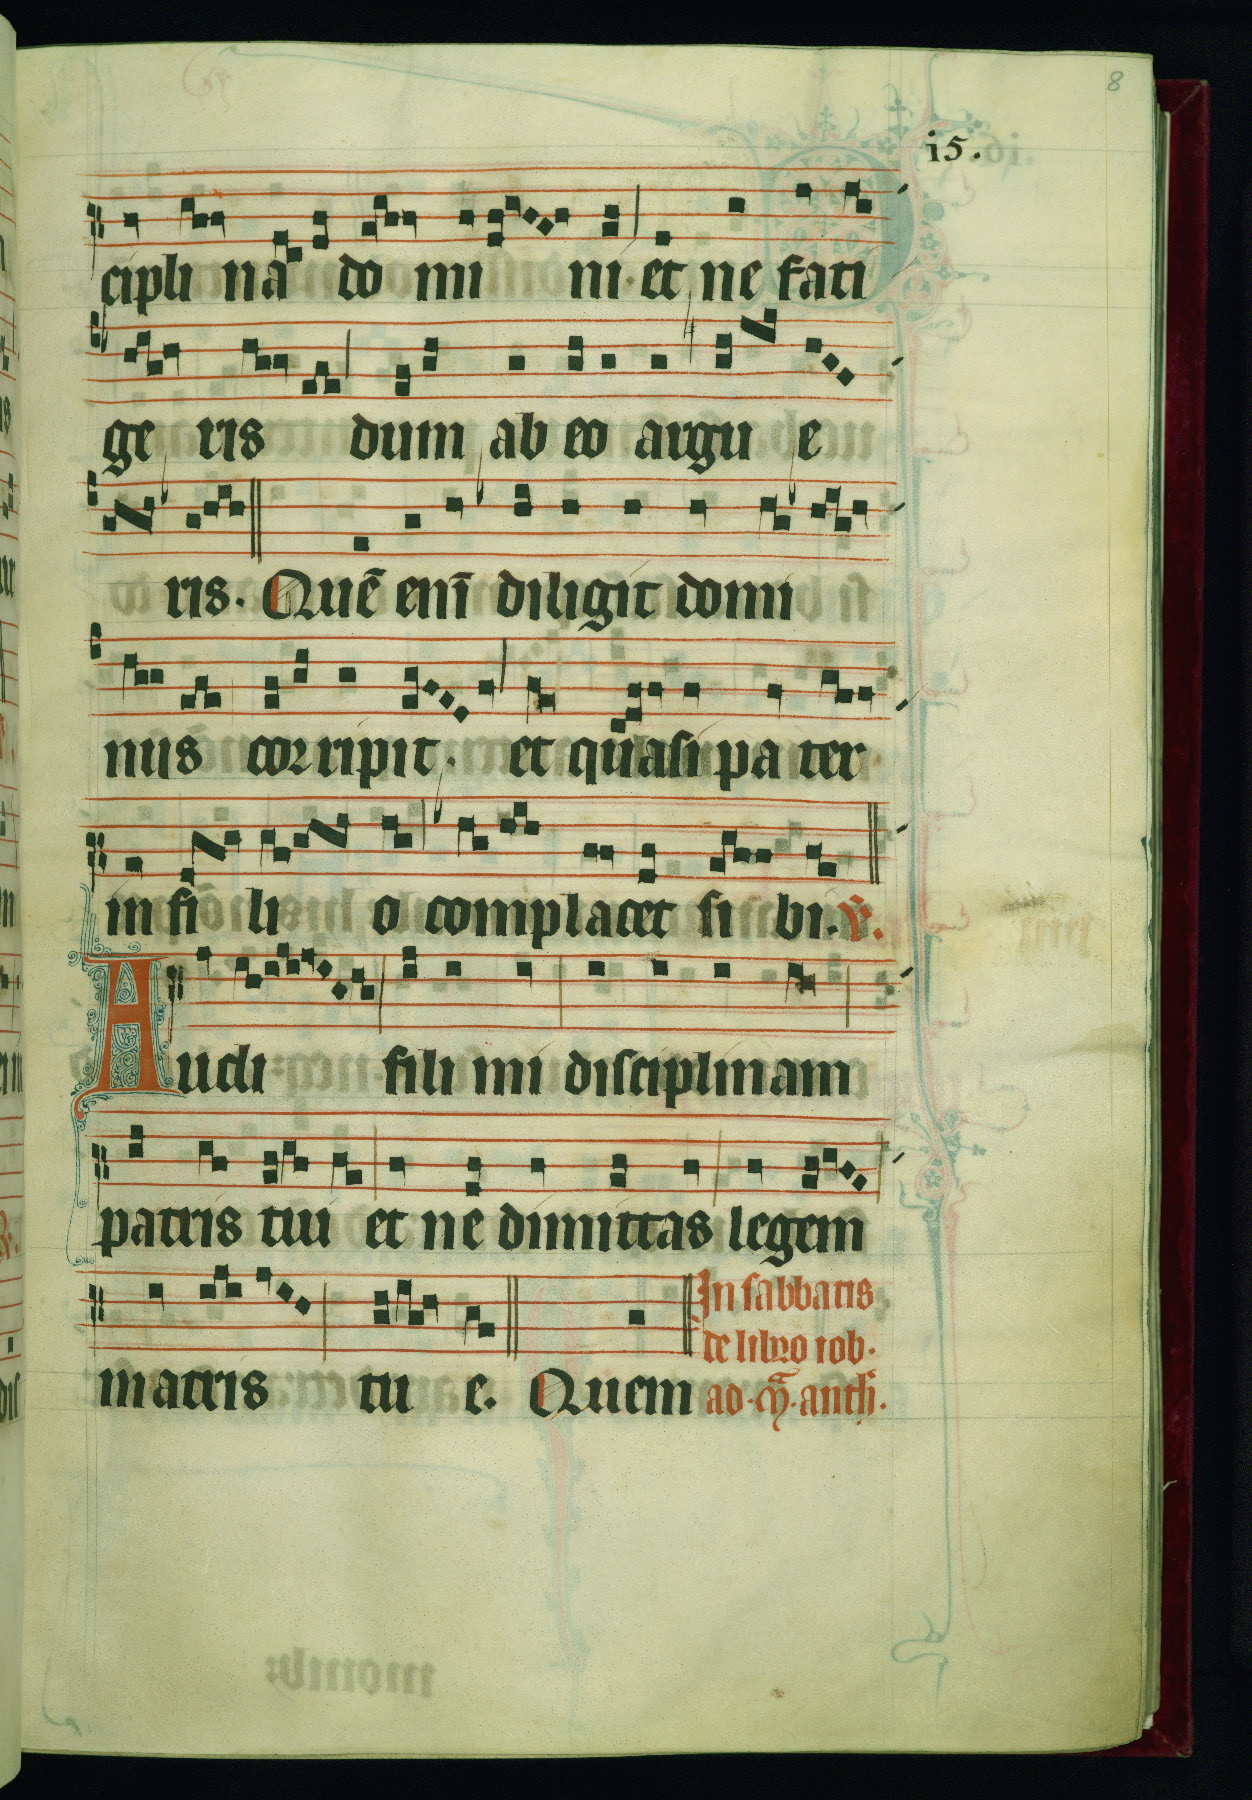 8
i5.
cipli na do mi ni. et ne fati
ge ris dum ab eo argu e
ris. Quē enī diligit domi
nus corripit. et quasi pa ter
in fi li o complacet si bi. ℣.
Audi fili mi disciplinam
patris tui et ne dimittas legem
matris tu e. Quem
In sabbatis
de libro iob.
ad. antħ.